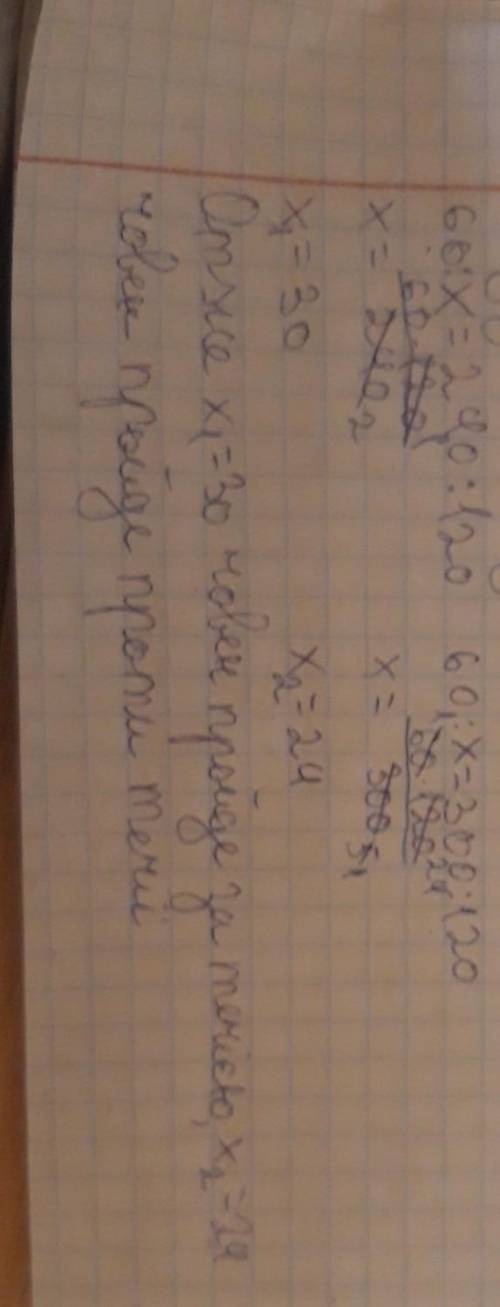 60:x=240:120 60:x=300:120
x= 60·120 / 240 2 x= 60·120 24 / 300 5
x₁=30 x₂=24
Отже x₁=30 човен пройде за течією, x₂=24
човен пройде проти течії